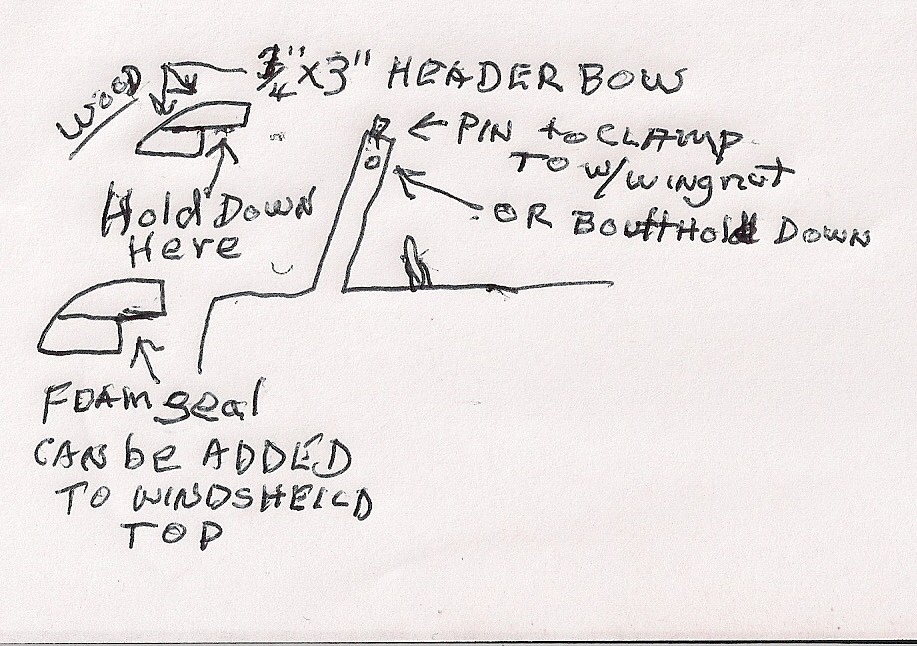 WOOD
3/4" x 3" HEADER BOW
PIN to CLAMP
TO W/WINGNUT
OR BOLT Hold DOWN
Hold DOWN
Here
FOAM seal
CAN be ADDED
TO WINDSHEILD
TOP